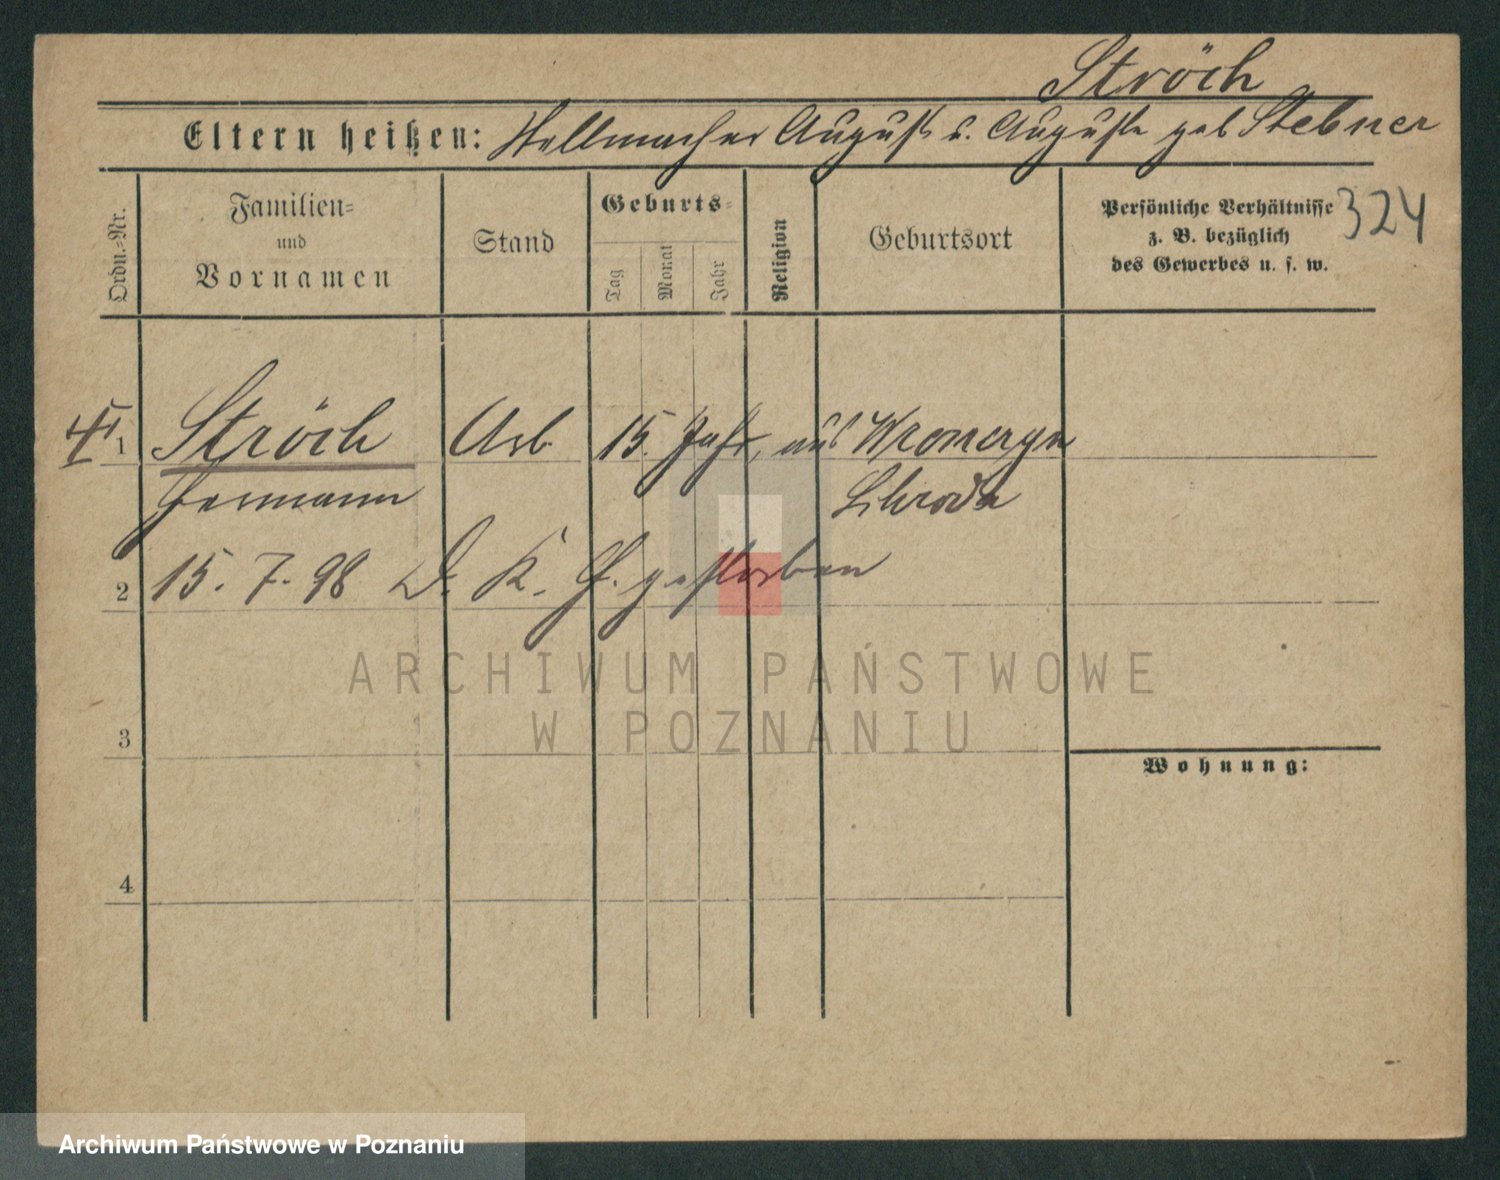 Ströch
Eltern heißen: Stellmacher August u. Auguste geb Stebner
Ordn.-Nr.
Familien-
und
Vornamen
Stand
Geburts-
Tag
Monat
Jahr
Religion
Geburtsort
Persönliche Verhältnisse
z. B. bezüglich
des Gewerbes u. s. w.
324
1 Ströch Arb 15. Jahr, aus
Hermann Schroda
2 15. 7. 98 D. K. H. gestorben
ARCHIWUM PAŃSTWOWE
W POZNANIU
3
Wohnung:
4
Archiwum Państwowe w Poznaniu